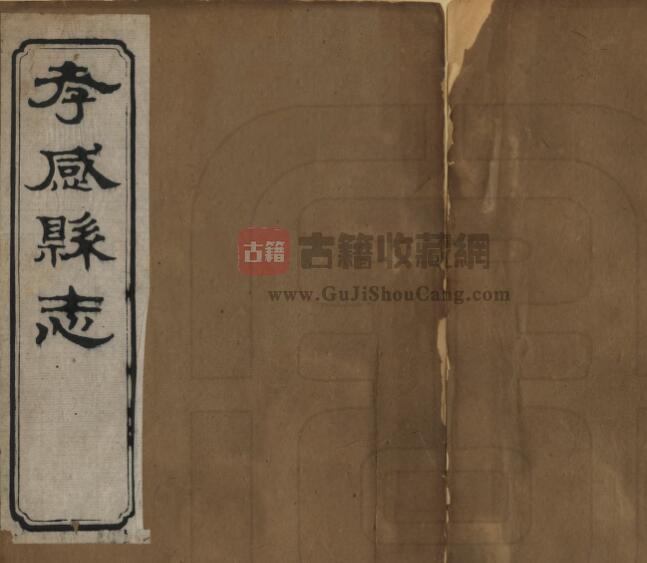 孝感縣志
古籍
古籍收藏網
www.GuJiShouCang.com